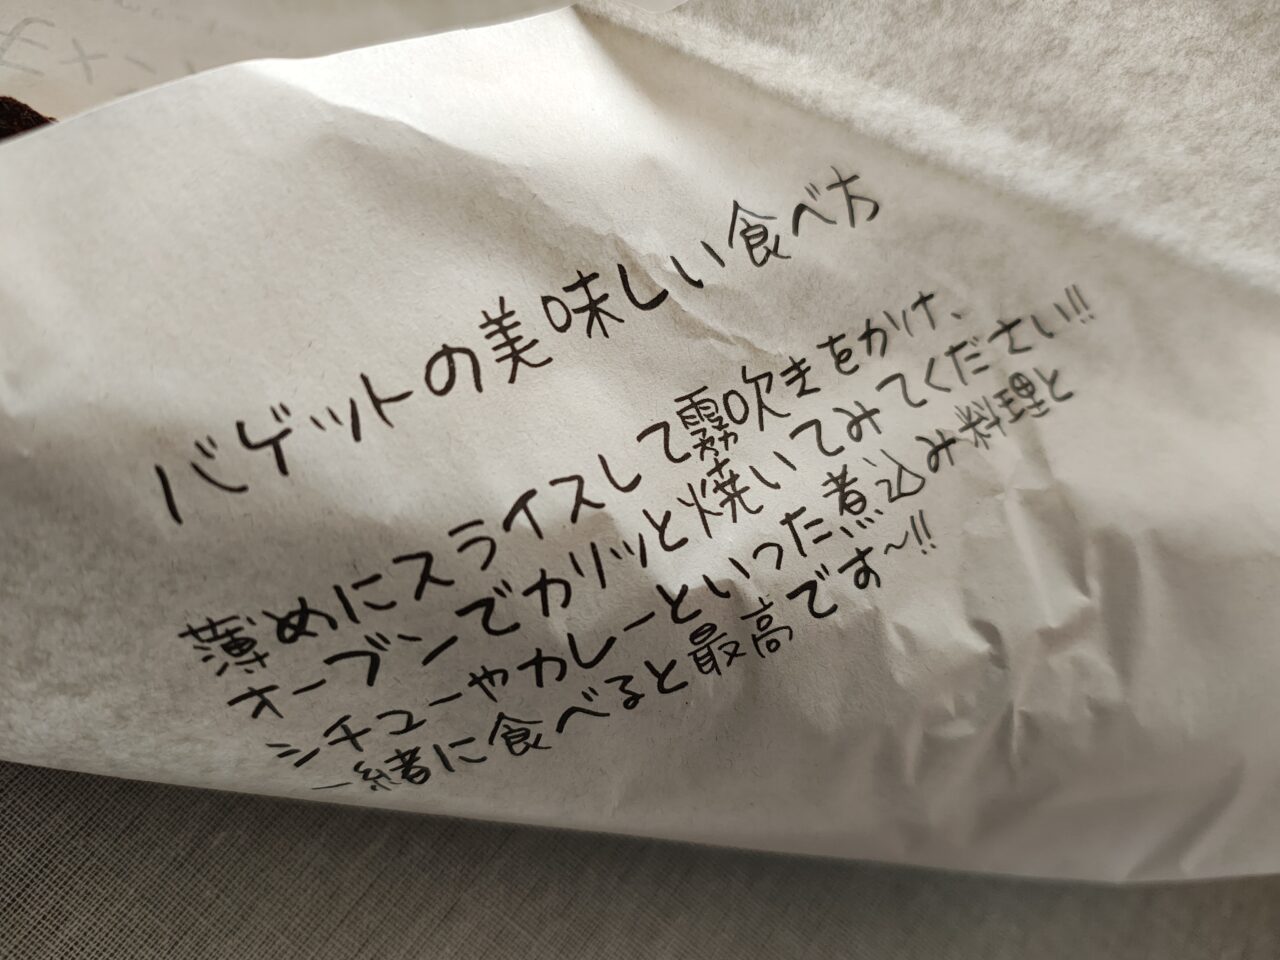 バゲットの美味しい食べ方
薄めにスライスして霧吹きをかけ、
オーブンでカリッと焼いてみてください!!
シチューやカレーといった煮込み料理と
一緒に食べると最高です〜!!